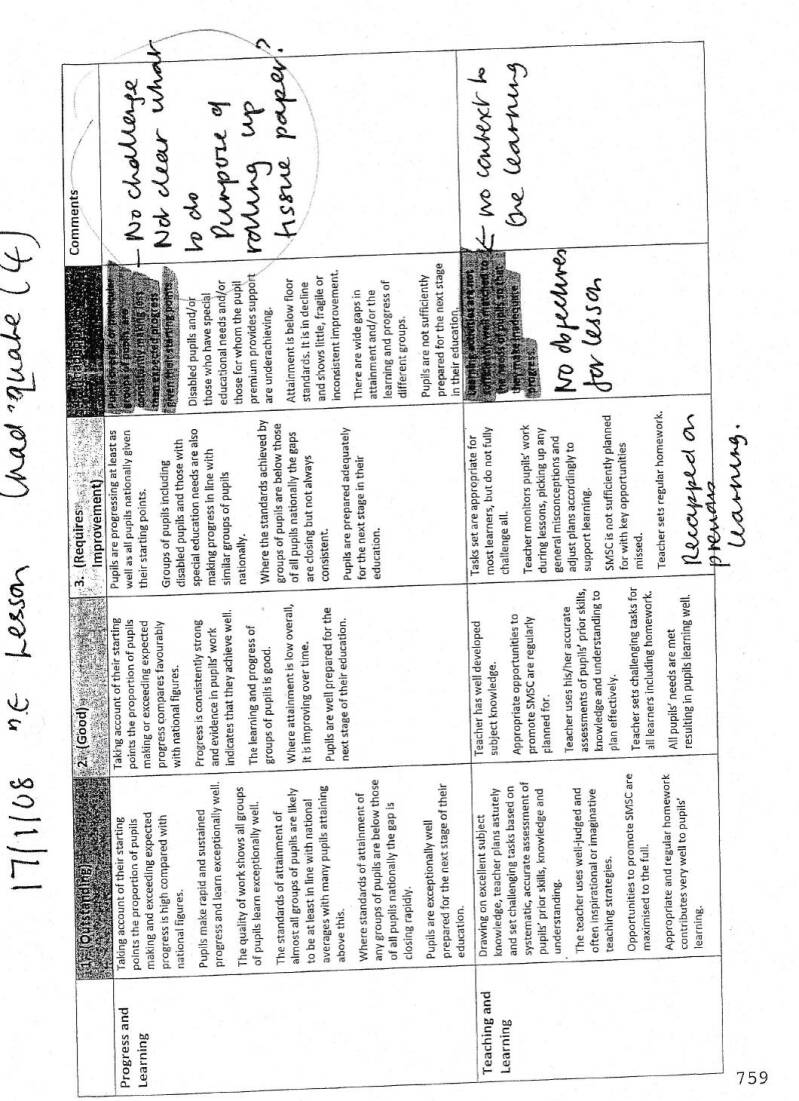 17/1/08
Lesson
(4)
1. (Outstanding)
2. (Good)
3. (Requires
Improvement)
Comments
Progress and
Learning
Taking account of their starting
points the proportion of pupils
making and exceeding expected
progress is high compared with
national figures.
Pupils make rapid and sustained
progress and learn exceptionally well.
The quality of work shows all groups
of pupils learn exceptionally well.
The standards of attainment of
almost all groups of pupils are likely
to be at least in line with national
averages with many pupils attaining
above this.
Where standards of attainment of
any groups of pupils are below those
of all pupils nationally the gap is
closing rapidly.
Pupils are exceptionally well
prepared for the next stage of their
education.
Taking account of their starting
points the proportion of pupils
making or exceeding expected
progress compares favourably
with national figures.
Progress is consistently strong
and evidence in pupils' work
indicates that they achieve well.
The learning and progress of
groups of pupils is good.
Where attainment is low overall,
it is improving over time.
Pupils are well prepared for the
next stage of their education.
Pupils are progressing at least as
well as all pupils nationally given
their starting points.
Groups of pupils including
disabled pupils and those with
special education needs are also
making progress in line with
similar groups of pupils
nationally.
Where the standards achieved by
groups of pupils are below those
of all pupils nationally the gaps
are closing but not always
consistent.
Pupils are prepared adequately
for the next stage in their
education.
groups of pupils are
consistently making less
than expected progress
given their starting points.
Disabled pupils and/or
those who have special
educational needs and/or
those for whom the pupil
premium provides support
are underachieving.
Attainment is below floor
standards. It is in decline
and shows little, fragile or
inconsistent improvement.
There are wide gaps in
attainment and/or the
learning and progress of
different groups.
Pupils are not sufficiently
prepared for the next stage
in their education.
- No challenge
Not clear what
to do
Purpose of
rolling up
tissue paper?
Teaching and
Learning
Drawing on excellent subject
knowledge, teacher plans astutely
and set challenging tasks based on
systematic, accurate assessment of
pupils' prior skills, knowledge and
understanding.
The teacher uses well-judged and
often inspirational or imaginative
teaching strategies.
Opportunities to promote SMSC are
maximised to the full.
Appropriate and regular homework
contributes very well to pupils'
learning.
Teacher has well developed
subject knowledge.
Appropriate opportunities to
promote SMSC are regularly
planned for.
Teacher uses his/her accurate
assessments of pupils' prior skills,
knowledge and understanding to
plan effectively.
Teacher sets challenging tasks for
all learners including homework.
All pupils' needs are met
resulting in pupils learning well.
Tasks set are appropriate for
most learners, but do not fully
challenge all.
Teacher monitors pupils' work
during lessons, picking up any
general misconceptions and
adjust plans accordingly to
support learning.
SMSC is not sufficiently planned
for with key opportunities
missed.
Teacher sets regular homework.
Recapped on
previous
learning.
Learning activities are not
sufficiently well matched to
the needs of pupils so that
they make inadequate
progress.
No objectives
for lesson
← no context to
the learning
759